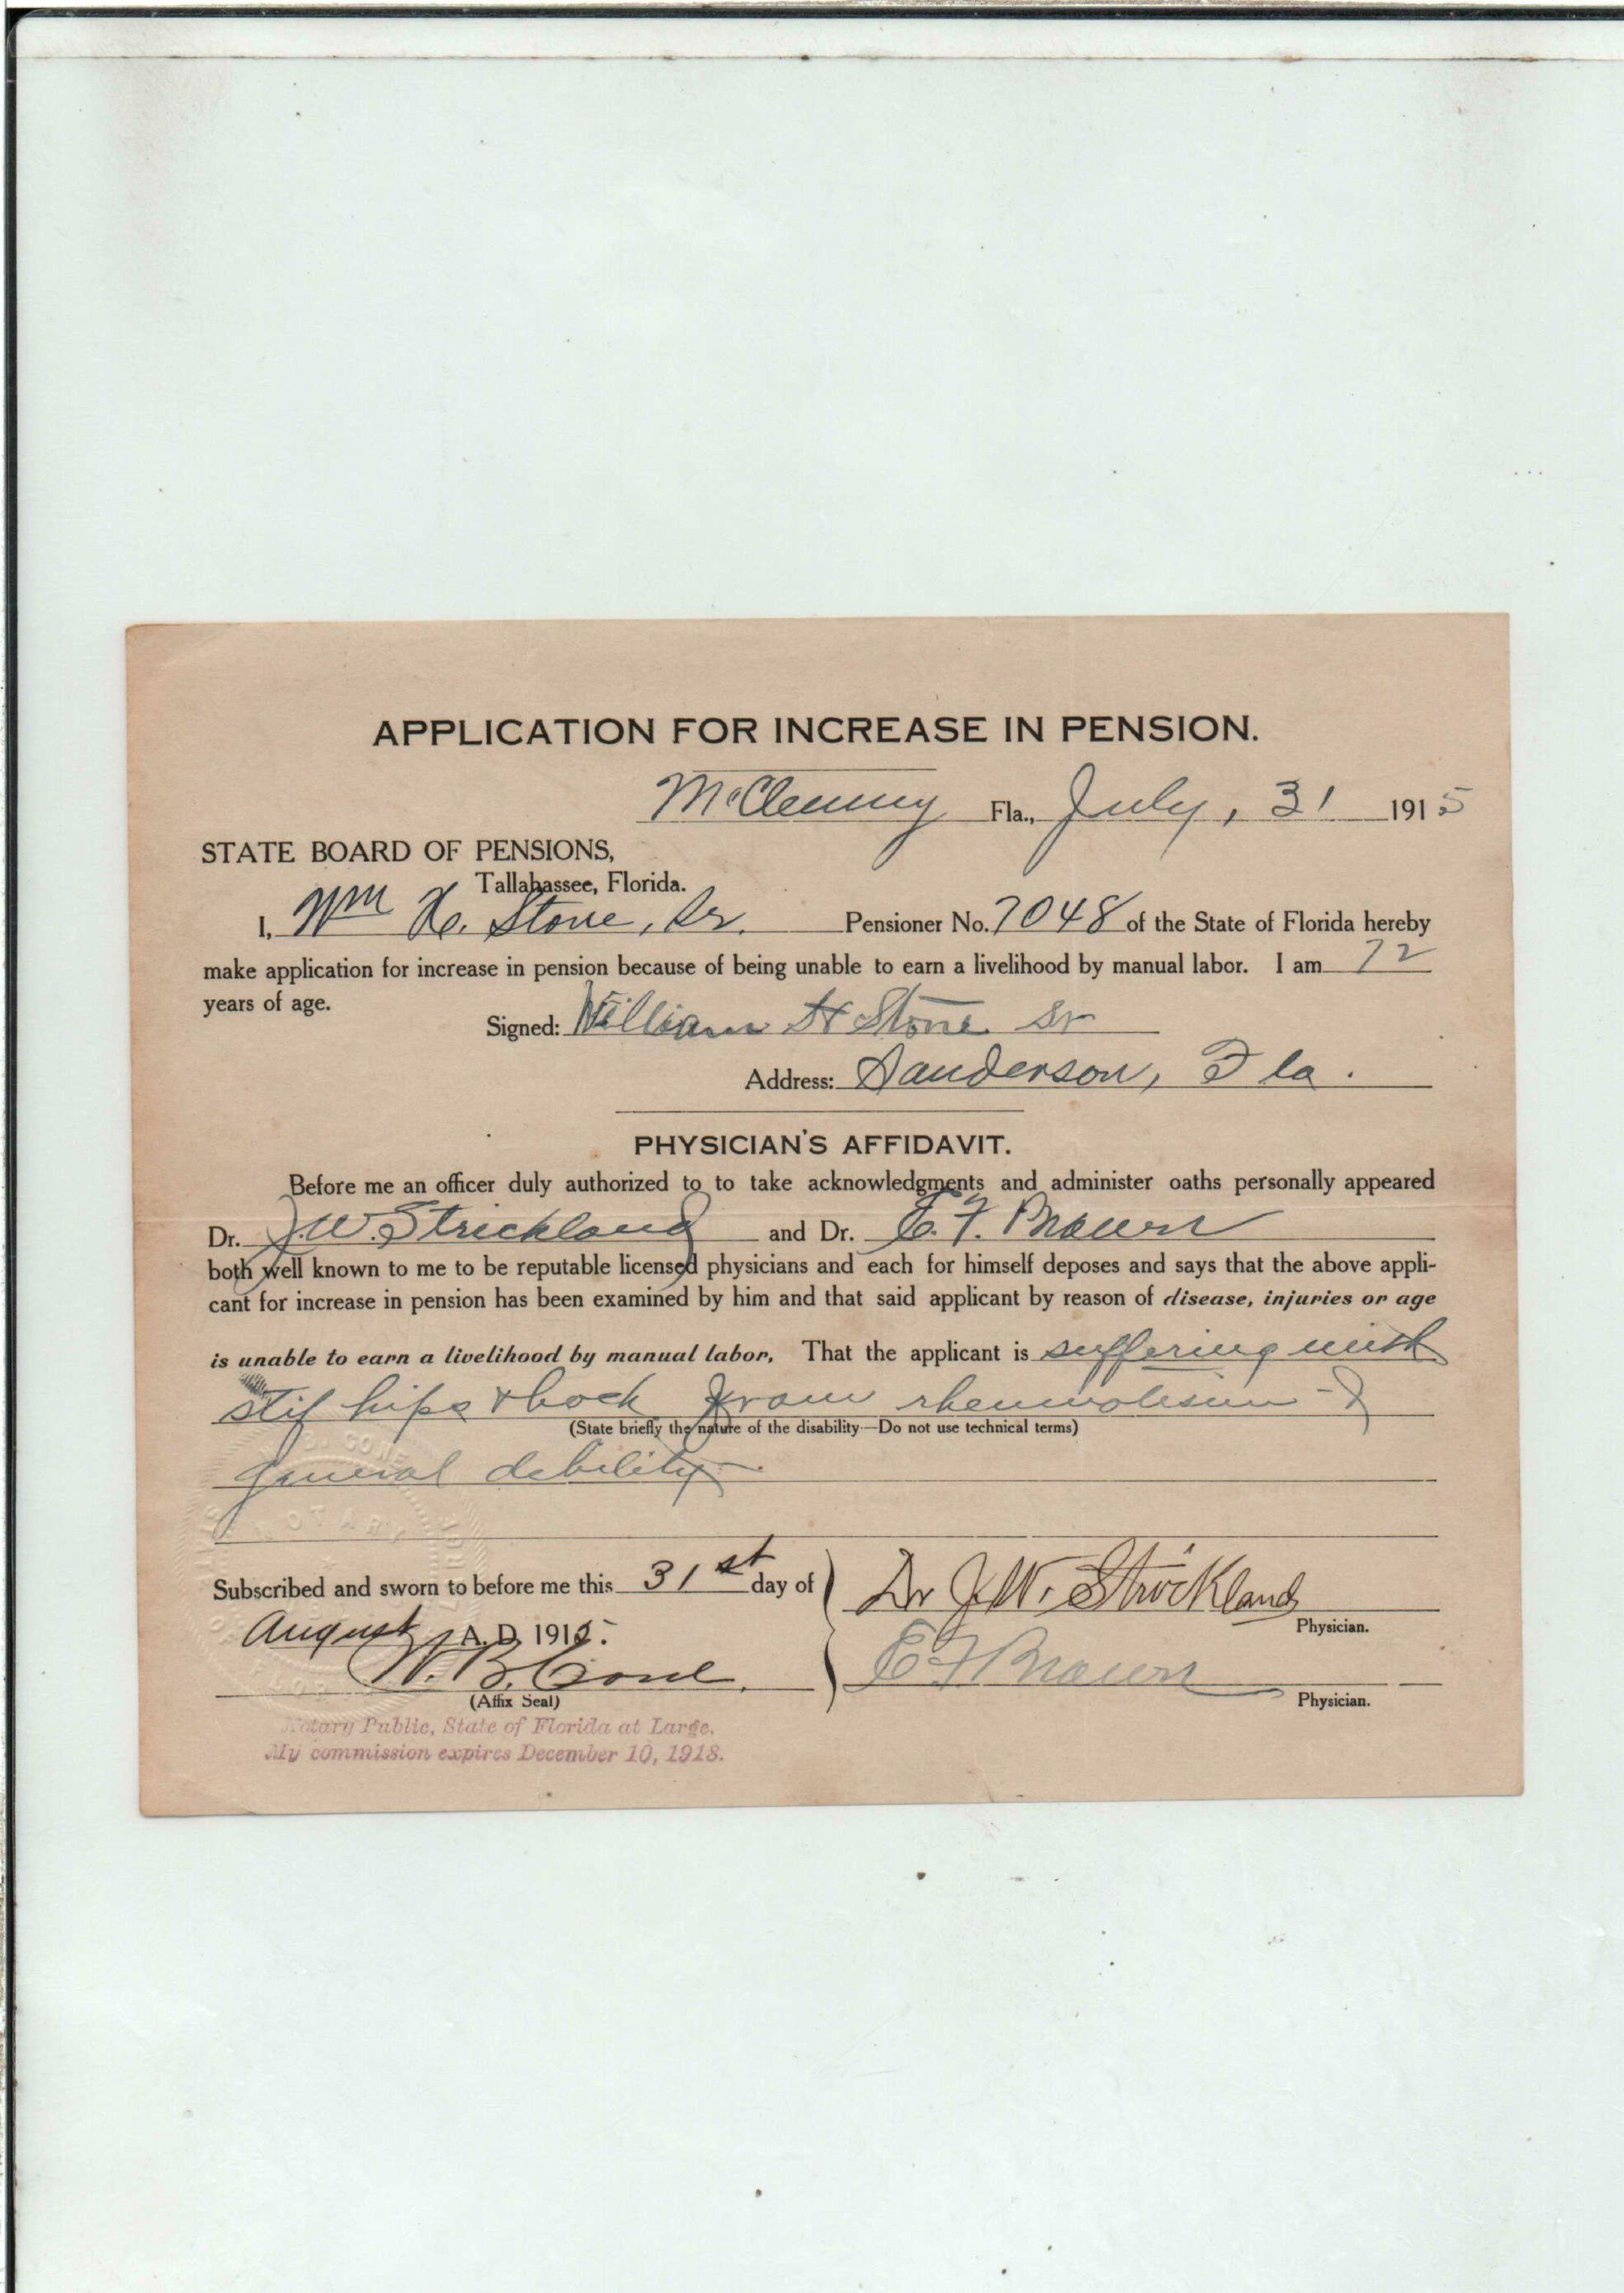 APPLICATION FOR INCREASE IN PENSION.
McClenny Fla., July, 31 1915
STATE BOARD OF PENSIONS,
Tallahassee, Florida.
I, Wm H. Stone, Sr. Pensioner No. 7048 of the State of Florida hereby
make application for increase in pension because of being unable to earn a livelihood by manual labor. I am 72
years of age.
Signed: William H Stone Sr
Address: Sanderson, Fla.
PHYSICIAN'S AFFIDAVIT.
Before me an officer duly authorized to to take acknowledgments and administer oaths personally appeared
Dr. J.W. Strickland and Dr. E. F. Brown
both well known to me to be reputable licensed physicians and each for himself deposes and says that the above appli-
cant for increase in pension has been examined by him and that said applicant by reason of disease, injuries or age
is unable to earn a livelihood by manual labor, That the applicant is suffering with
stif hips & back from rheumatism &
(State briefly the nature of the disability—Do not use technical terms)
general debility.
Subscribed and sworn to before me this 31st day of
August A. D. 1915.
W. B. Cone
(Affix Seal)
Notary Public, State of Florida at Large.
My commission expires December 10, 1918.
Dr J.W. Strickland
Physician.
E F Brown
Physician.